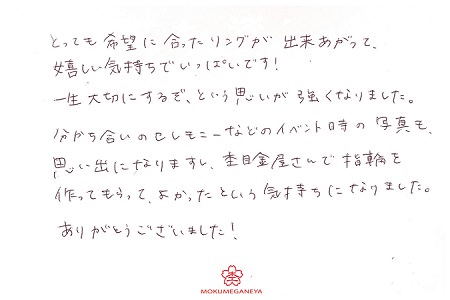 とっても希望に合ったリングが出来あがって、
嬉しい気持ちでいっぱいです!
一生大切にするぞ、という思いが強くなりました。
分かち合いのセレモニーなどのイベント日時の写真も、
思い出になりますし、杢目金屋さんで指輪を
作ってもらって、よかったという気持ちになりました。
ありがとうございました!
MOKUMEGANEYA